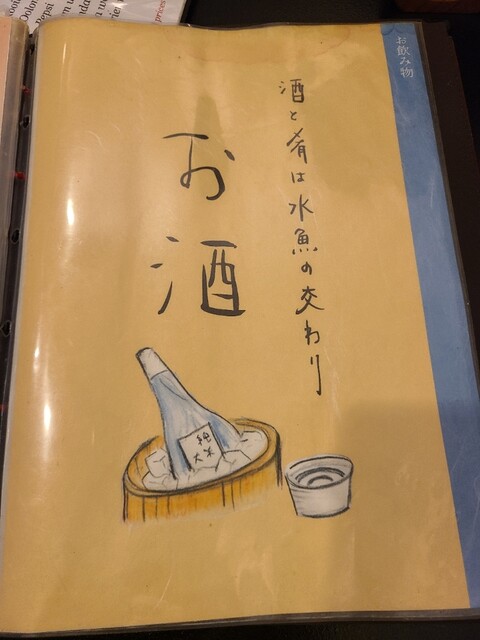 お飲み物
酒と肴は水魚の交わり
お酒
純米
大
Pepsi
prices